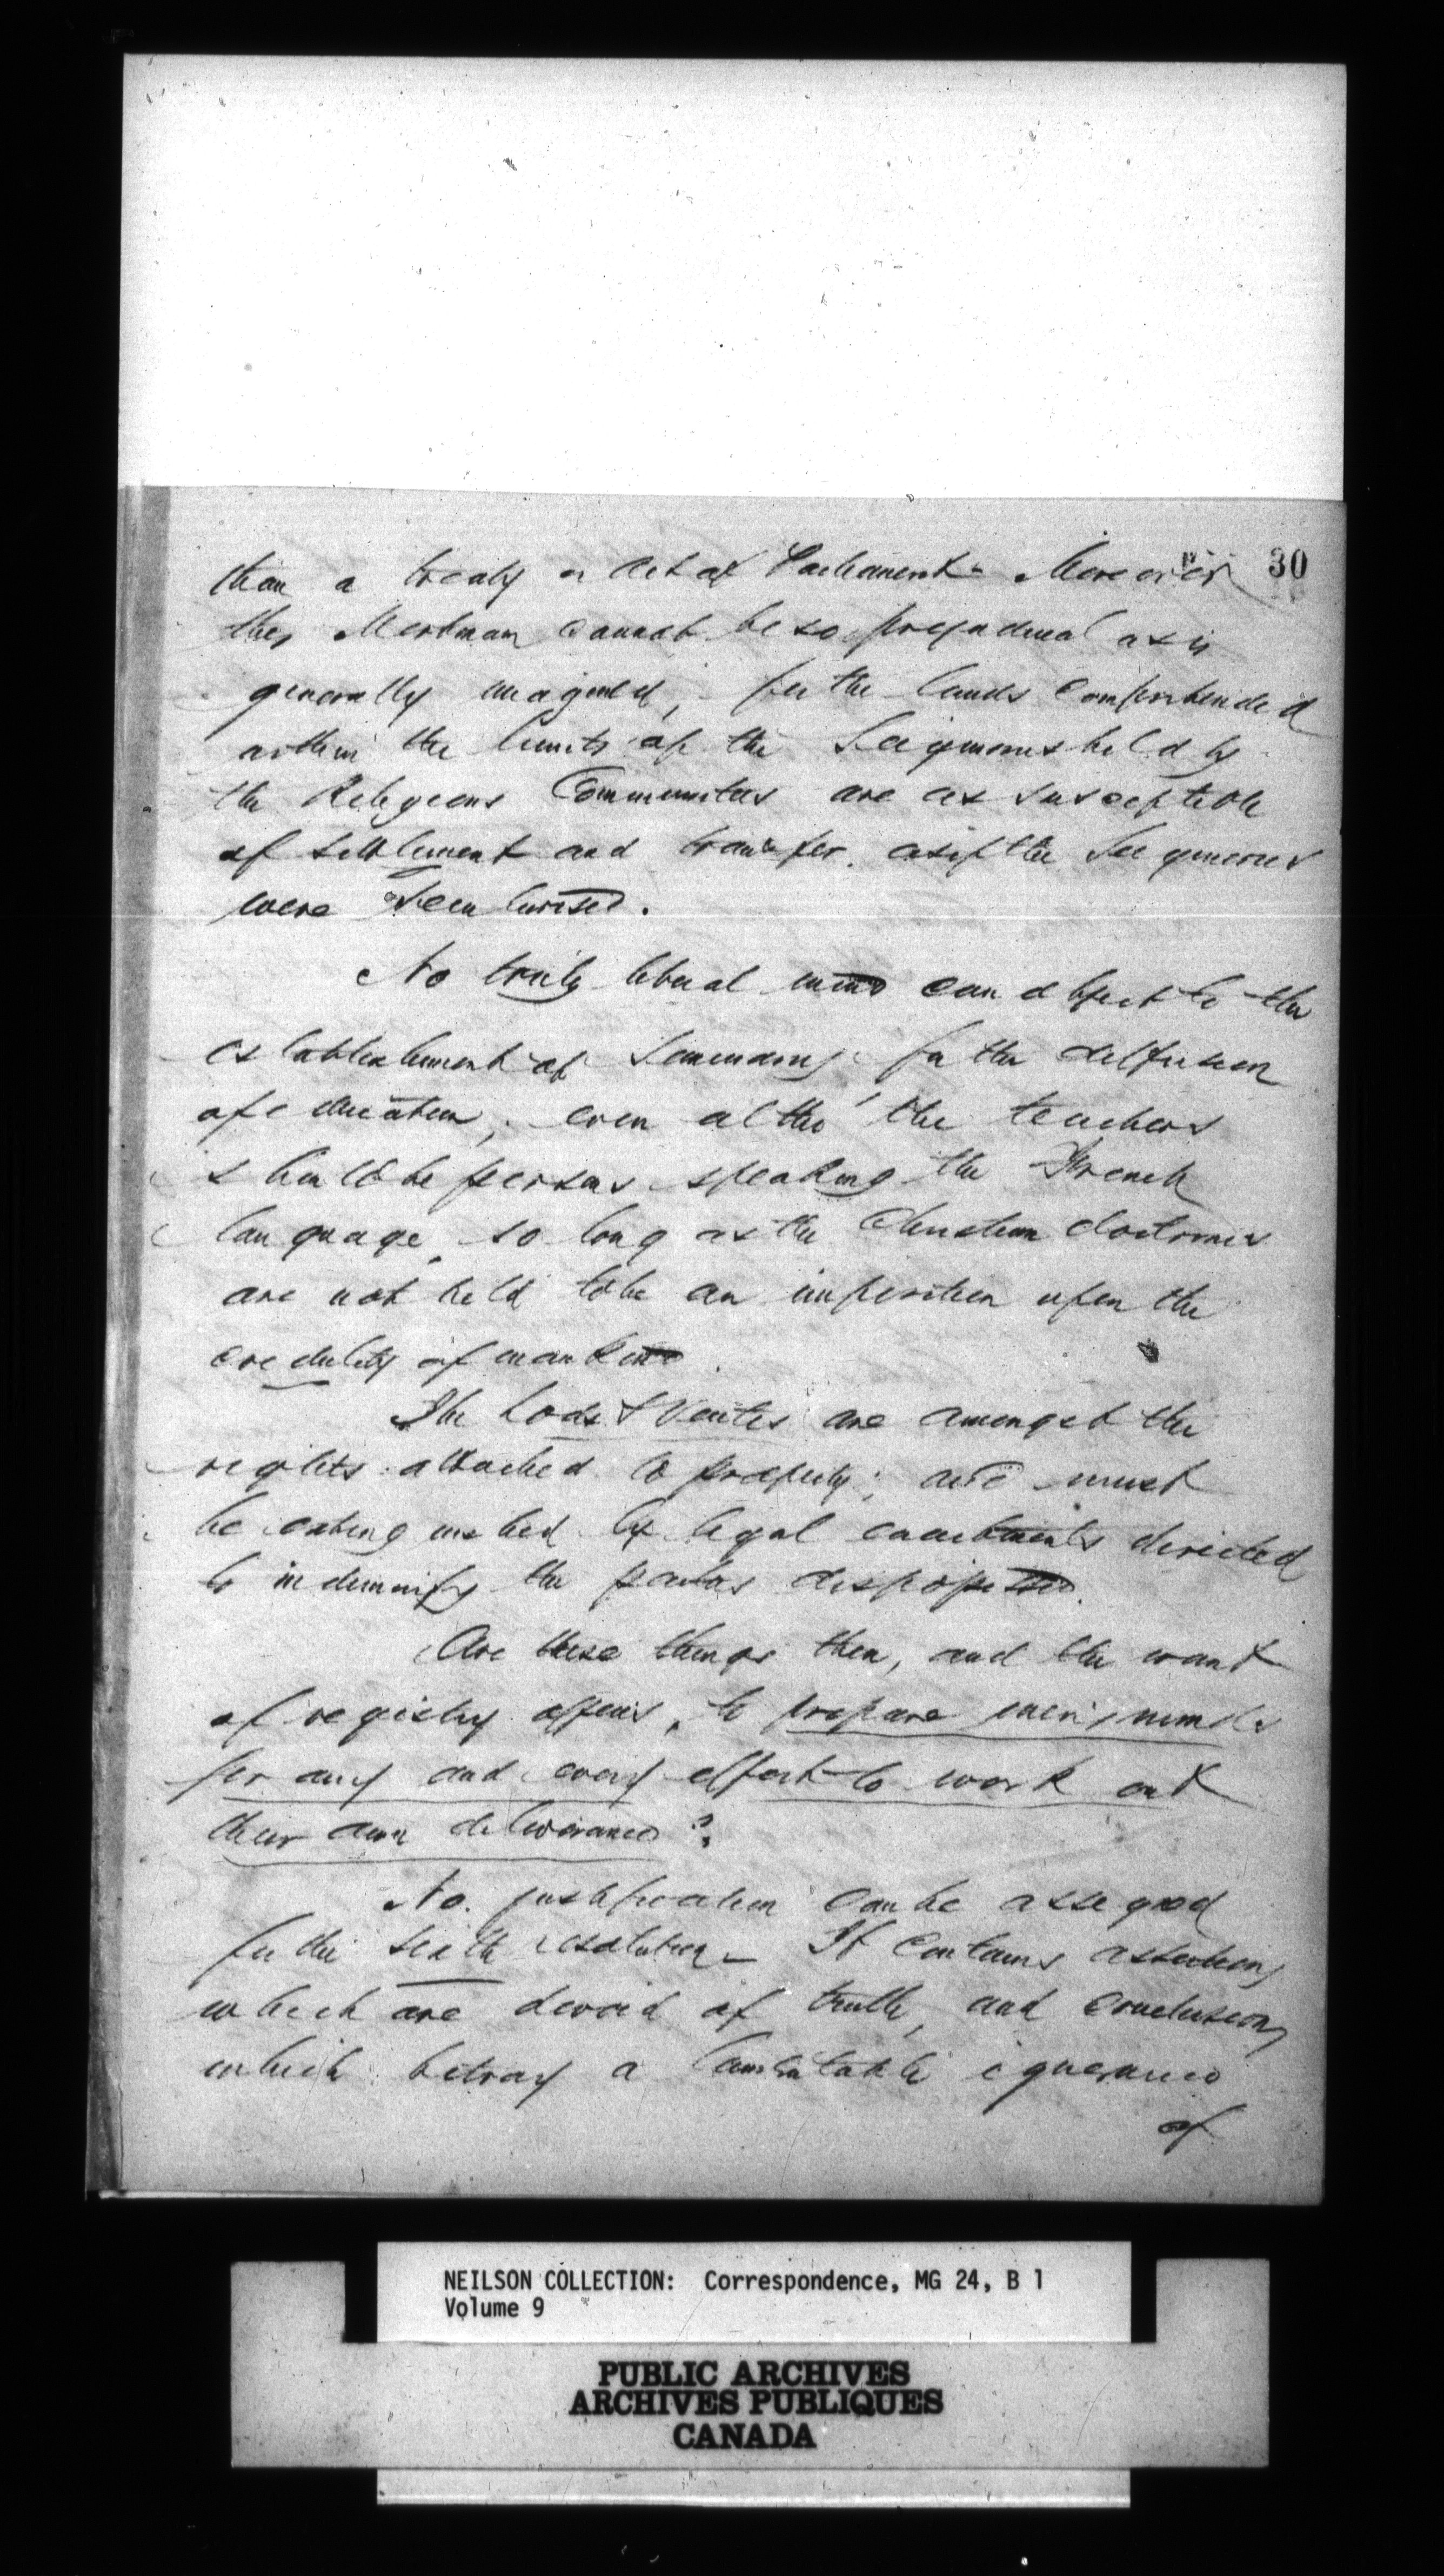 than a treaty or Act of Parliament - Moreover 30
this Mortmain cannot be so prejudicial as is
generally imagined, for the lands comprehended
within the limits of the Seigniories held by
the Religious Communities are as susceptible
of settlement and transfer as if the Seigniories
were secularised.
No truly liberal mind can object to the
establishment of Seminarys for the diffusion
of education, even altho' the teachers
should be persons speaking the French
language, so long as the Christian doctrines
are not held to be an imposition upon the
credulity of mankind.
The Lods & Ventes are amongst the
rights attached to property; and must
be extinguished by legal enactments directed
to indemnify the parties dispossessed.
Are these things then, and the want
of registry offices, to prepare men's minds
for any and every effort to work out
their own deliverance?
No justification can be assigned
for the sixth resolution - It contains assertions
which are devoid of truth, and conclusions
which betray a lamentable ignorance
of
NEILSON COLLECTION: Correspondence, MG 24, B 1
Volume 9
PUBLIC ARCHIVES
ARCHIVES PUBLIQUES
CANADA